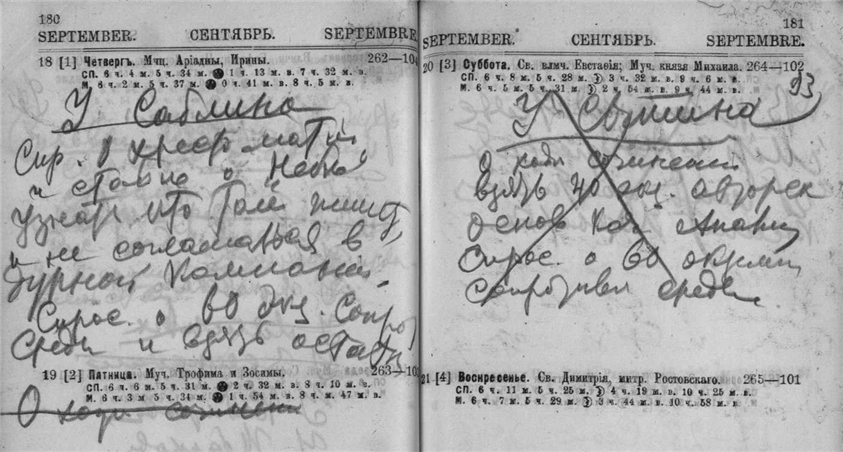 180
SEPTEMBER. СЕНТЯБРЬ. SEPTEMBRE.
18 [1] Четвергъ. Мчц. Аріадны, Ирины. 262—104
СП. 6 ч. 4 м. 5 ч. 34 м. 1 ч. 13 м. в. 7 ч. 32 м. в.
М. 6 ч. 2 м. 5 ч. 37 м. 0 ч. 41 м. в. 8 ч. 5 м. в.
У Саблина
Спр. о
и о
узнать что там пишут
и не соглашаться в
дурной компании
Спрос. о 60 экз. Сопро
Среди и взять остат
19 [2] Пятница. Муч. Трофима и Зосимы. 263—103
СП. 6 ч. 6 м. 5 ч. 31 м. 2 ч. 32 м. в. 8 ч. 10 м. в.
М. 6 ч. 3 м. 5 ч. 34 м. 1 ч. 54 м. в. 8 ч. 47 м. в.
О ходе сочинен
181
SEPTEMBER. СЕНТЯБРЬ. SEPTEMBRE.
20 [3] Суббота. Св. влмч. Евстаѳія; Муч. князя Михаила. 264—102
СП. 6 ч. 8 м. 5 ч. 28 м. 3 ч. 32 м. в. 9 ч. 6 м. в.
М. 6 ч. 5 м. 5 ч. 31 м. 2 ч. 54 м. в. 9 ч. 44 м. в.
93
У Сытина
О ходе сочинений
взять 40 экз. авторск
Основ
Спрос. о 60
Сопротивл среды
21 [4] Воскресенье. Св. Димитрія, митр. Ростовскаго. 265—101
СП. 6 ч. 11 м. 5 ч. 25 м. 4 ч. 19 м. в. 10 ч. 25 м. в.
М. 6 ч. 7 м. 5 ч. 29 м. 3 ч. 44 м. в. 10 ч. 58 м. в.